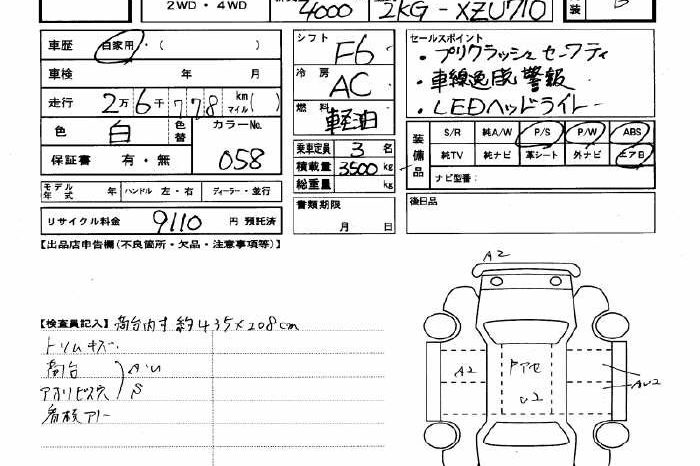 2WD・4WD 4000 2KG-XZU710 装 B
車歴 自家用・( )
車検 年 月
走行 2万6千778 km マイル( )
色 白 色替 カラーNo. 058
保証書 有・無
モデル年式 年 ハンドル 左・右 ディーラー・並行
リサイクル料金 9110 円 預託済
シフト F6
冷房 AC
燃料 軽油
乗車定員 3 名
積載量 3500 kg
総重量 kg
書類期限
月 日
セールスポイント
・プリクラッシュセーフティ
・車線逸脱警報
・LEDヘッドライト
装備品 S/R 純A/W P/S P/W ABS
純TV 純ナビ 革シート 外ナビ エアB
ナビ型番:
後日品
【出品店申告欄(不良箇所・欠品・注意事項等)】
【検査員記入】荷台内寸 約435×208cm
トリムキズ・
荷台
アオリ
A2
A2
U2
AU2